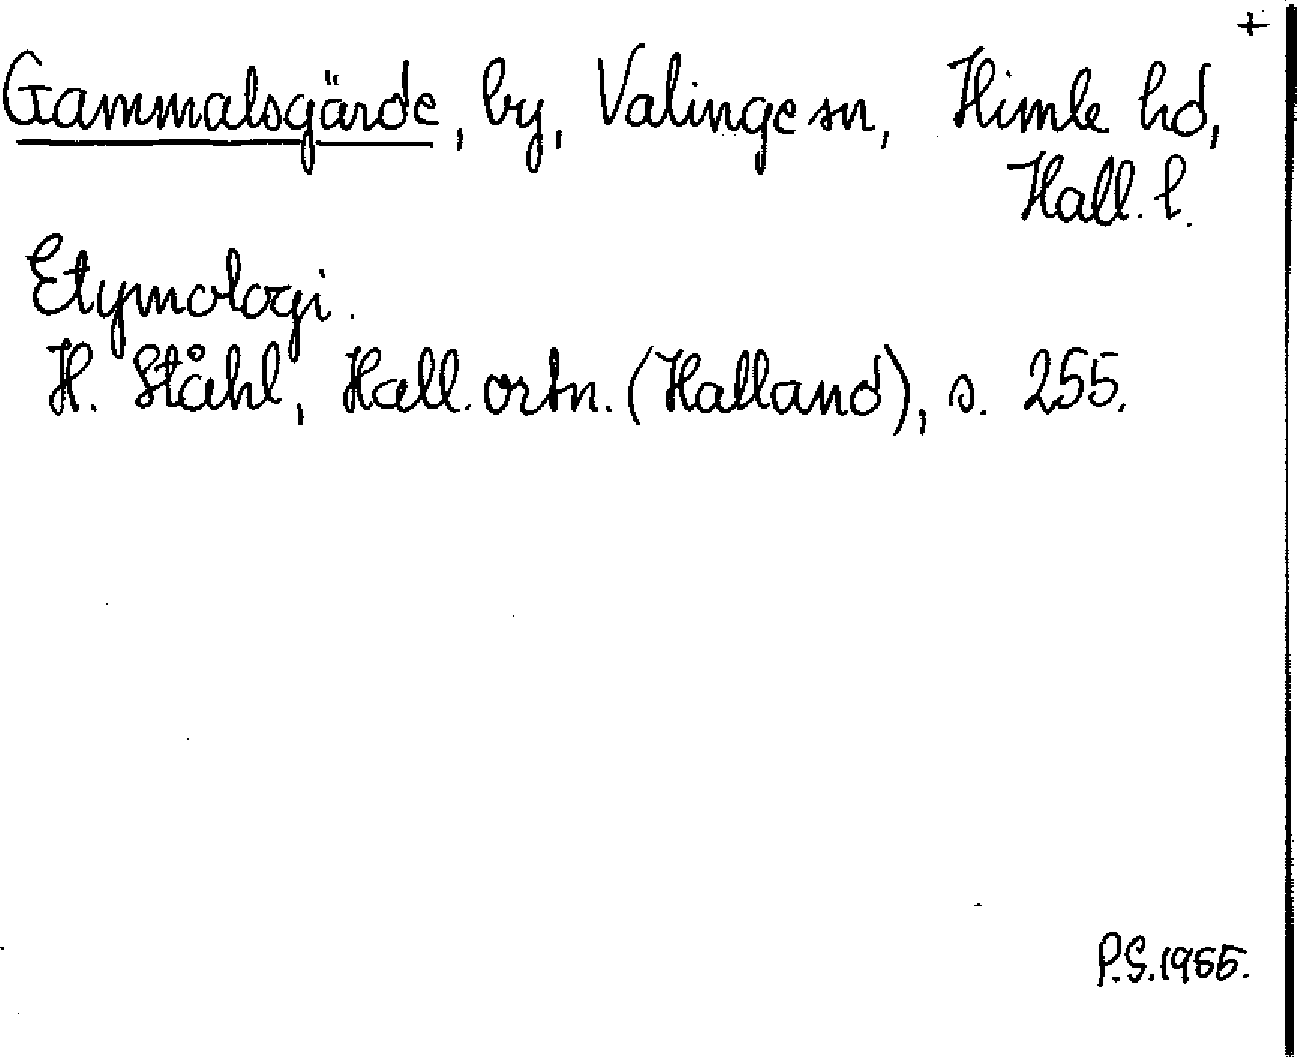 +
Gammalsgärde, by, Valinge sn, Himle hd,
Hall. l.
Etymologi.
H. Ståhl, Hall. ortn. (Halland), s. 255.
P.S. 1955.